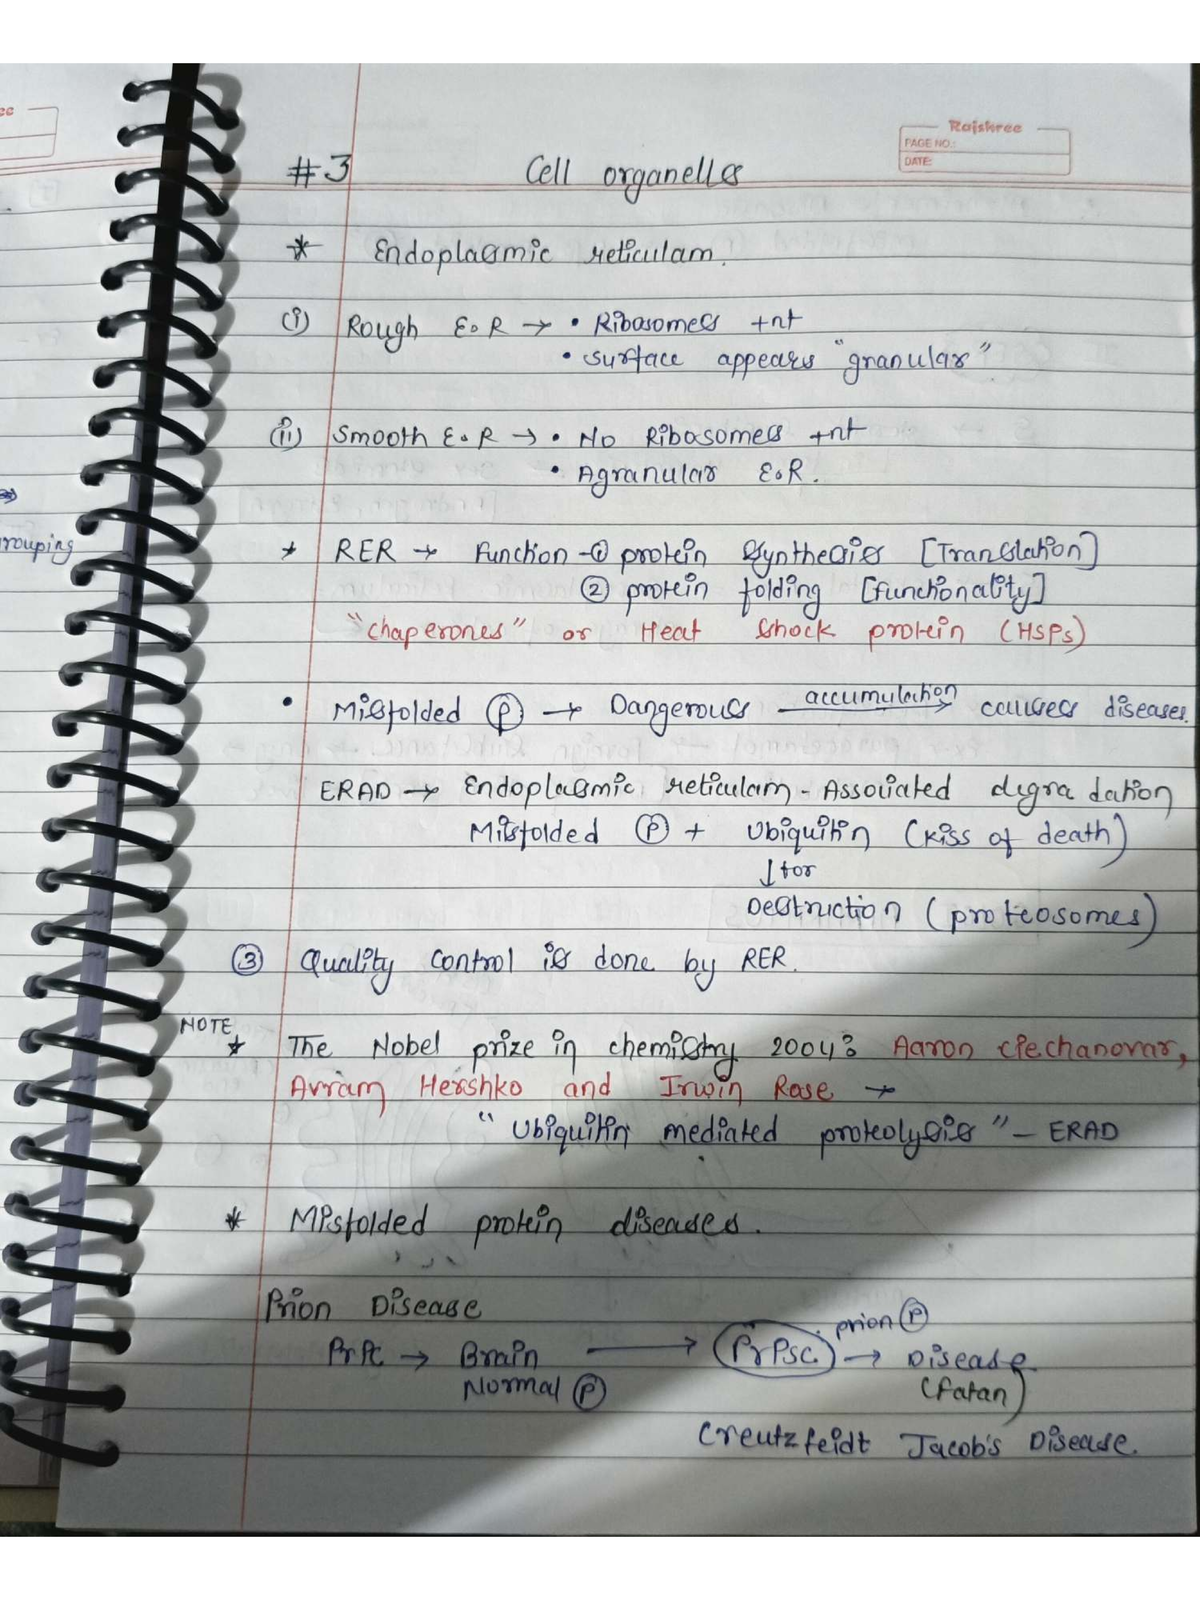 ee
Rajshree
PAGE NO.:
DATE:
#3 Cell organelles
* Endoplasmic reticulam.
(i) Rough E.R → • Ribosomes +nt
• surface appears "granular"
(ii) Smooth E.R → • No Ribosomes +nt
• Agranular E.R.
rouping
* RER → Function - ① protein synthesis [Translation]
② protein folding [functionality]
"chaperones" or Heat shock protein (HSPs)
• Misfolded Ⓟ → Dangerous accumulation → causes diseases.
ERAD → Endoplasmic reticulam - Associated degradation
Misfolded Ⓟ + Ubiquitin (kiss of death)
↓ for
Destruction (proteosomes)
③ Quality control is done by RER.
NOTE
* The Nobel prize in chemistry 2004: Aaron ciechanovar,
Avram Hershko and Irwin Rose →
"Ubiquitin mediated proteolysis" - ERAD
* Misfolded protein diseases.
Prion Disease
PrPc → Brain → PrPsc. prion Ⓟ → Disease
Normal Ⓟ (fatan)
Creutzfeidt Jacob's Disease.